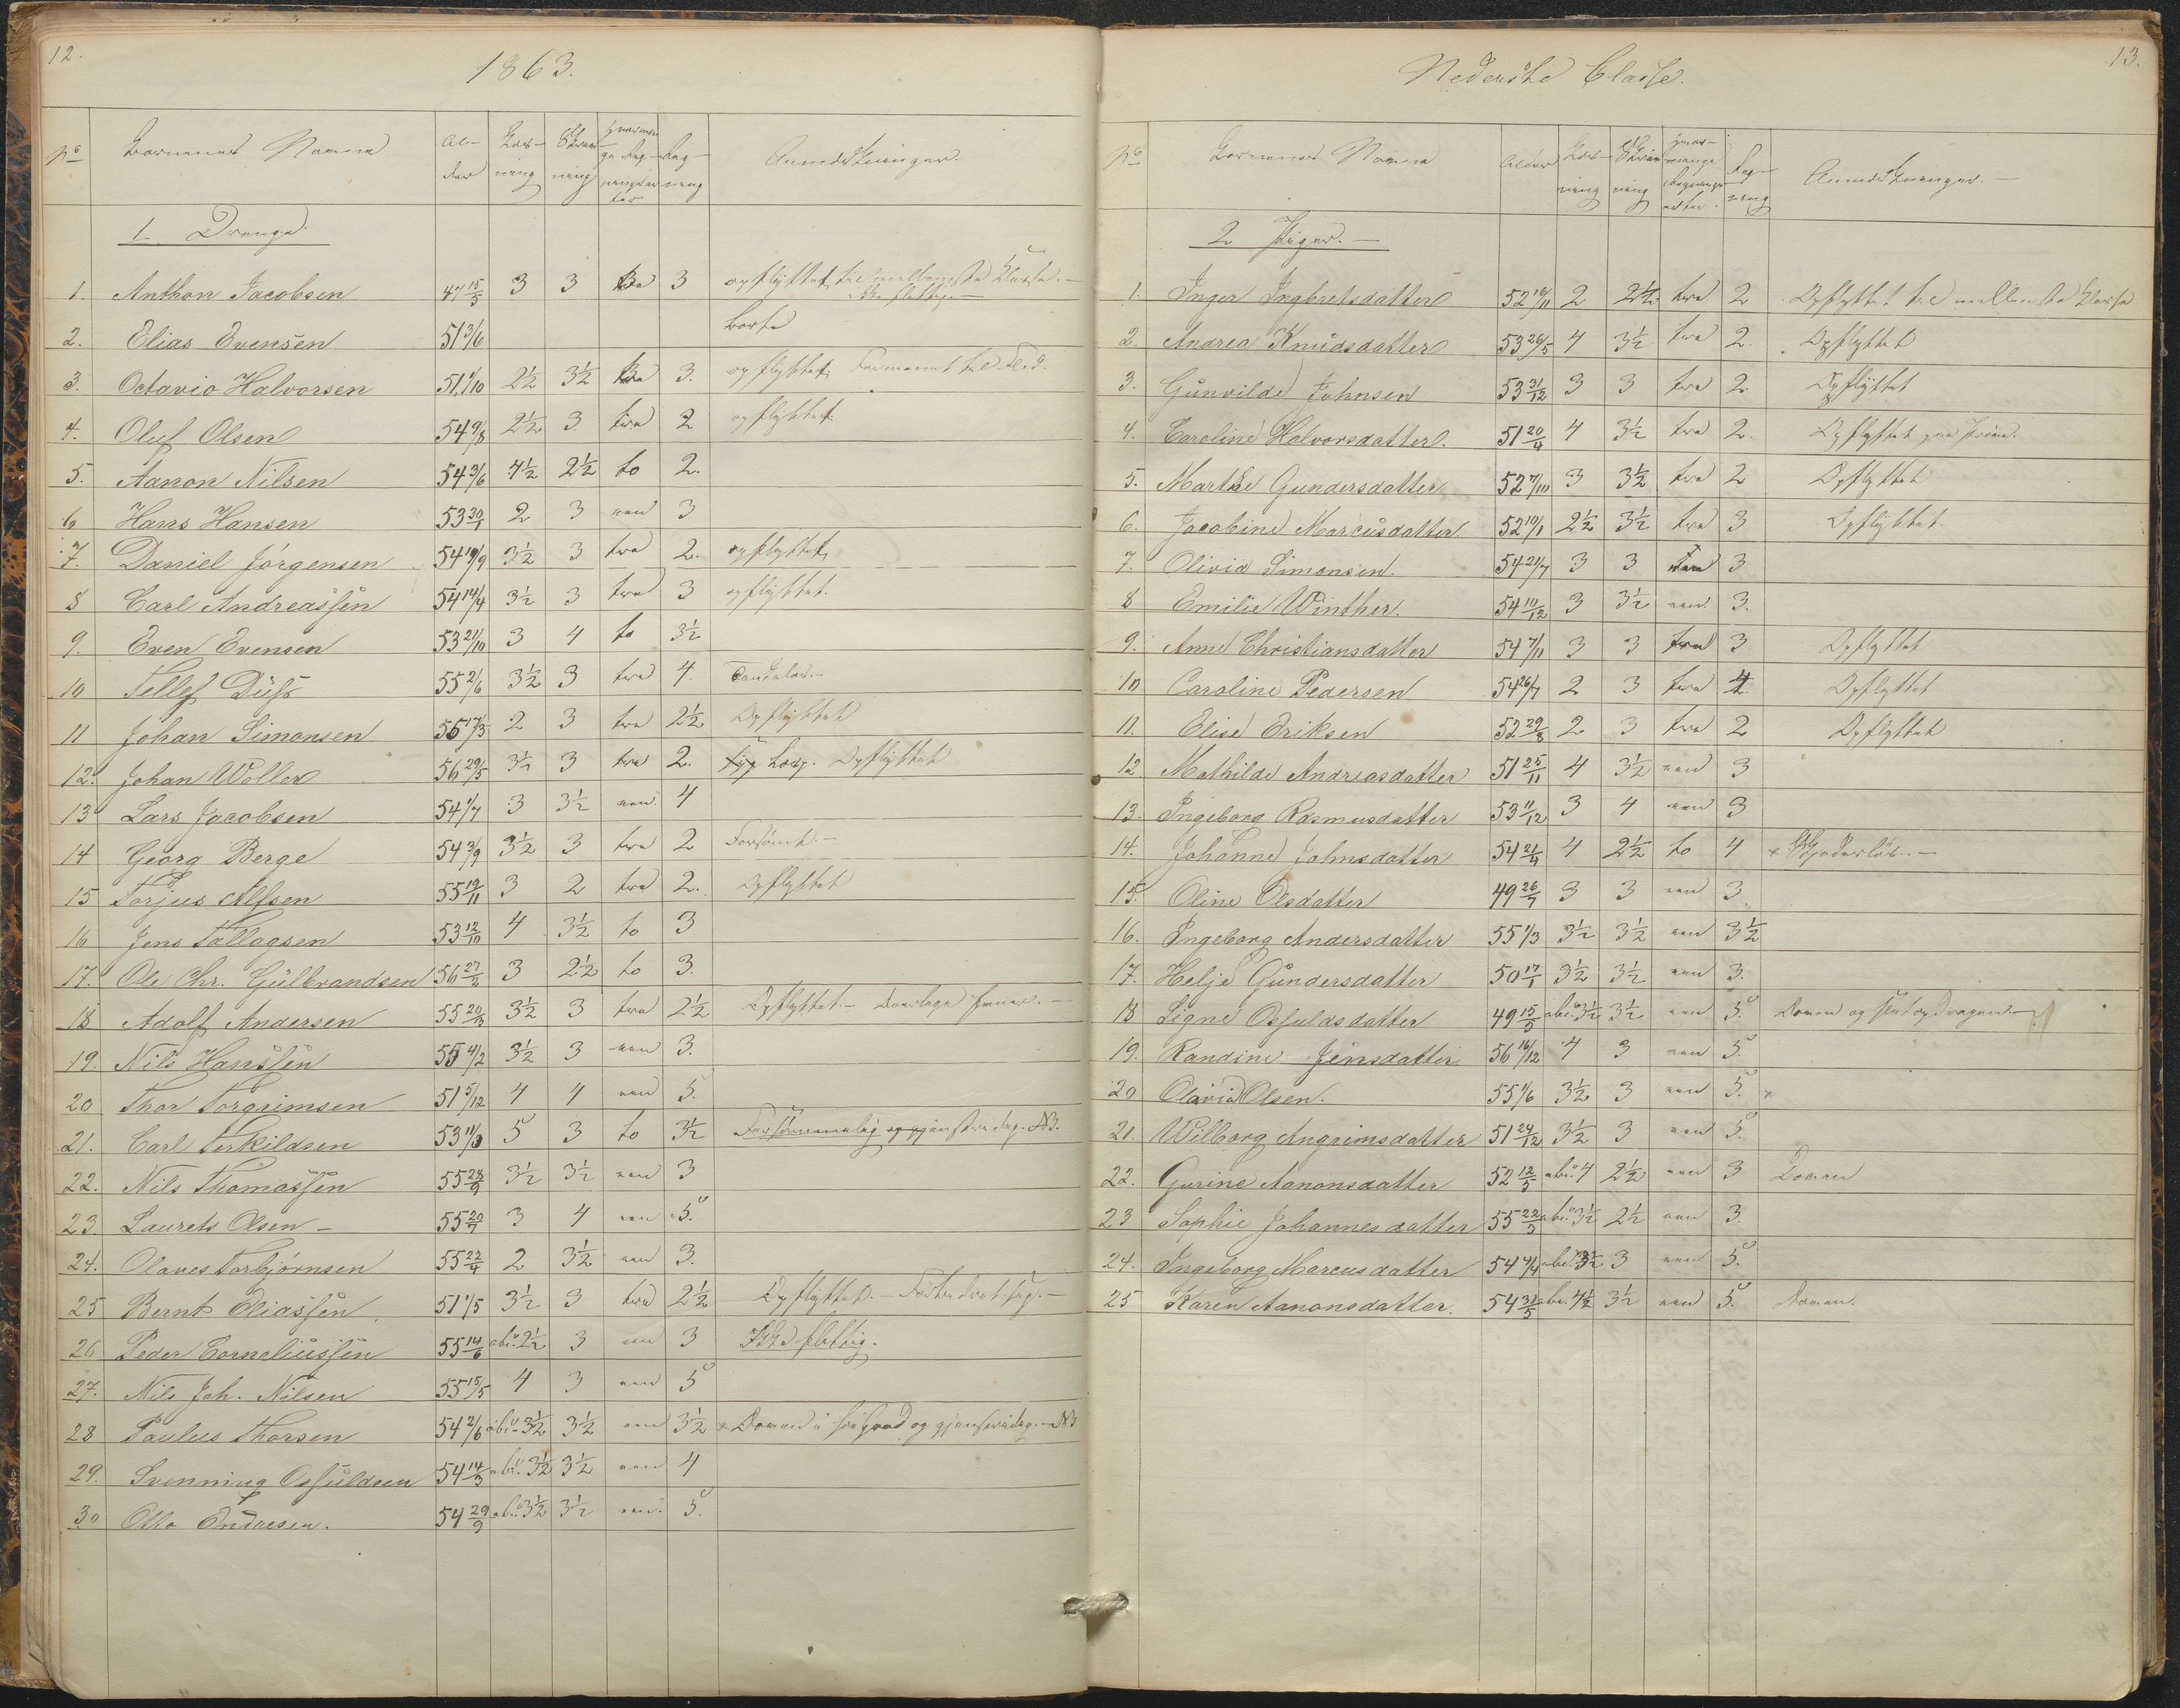 12.
1863.
No Børnenes Navne Al-der Læs-ning Skriv-ning Hvormange Regningsarter Reg-ning Anmærkninger.
1. Drenge.
1. Anthon Jacobsen 47 15/5 3 3 tre 3 opflyttet til mellemste Klasse. –
2. Elias Evensen 51 3/6 borte
3. Octavio Halvorsen 51 1/10 2½ 3½ tre 3. opflyttet
4. Oluf Olsen 54 9/8 2½ 3 tre 2 opflyttet
5. Aanon Nilsen 54 3/6 4½ 2½ to 2.
6 Hans Hansen 53 30/1 2 3 een 3
7. Daniel Jörgensen 54 19/9 3½ 3 tre 2. opflyttet
8 Carl Andreassen 54 14/4 3½ 3 tre 3 opflyttet.
9. Even Evensen 53 21/10 3 4 to 3½
10 Tellef 55 2/6 3½ 3 tre 4.
11 Johan Simonsen 55 17/3 2 3 tre 2½ Opflyttet
12. Johan Woller 56 29/5 3½ 3 tre 2. Opflyttet
13 Lars Jacobsen 54 1/7 3 3½ een. 4
14 Georg Berge 54 3/9 3½ 3 tre 2 Forsömt. –
15 Torjus Alfsen 55 19/11 3 2 tre 2. Opflyttet
16 Jens Tallagsen 53 12/10 4 3½ to 3
17. Ole Chr. Gulbrandsen 56 27/2 3 2½ to 3.
18 Adolf Andersen 55 20/3 3½ 3 tre 2½ Opflyttet. –
19. Nils Hanssen 55 4/2 3½ 3 een 3.
20 Thor Torgrimsen 51 5/12 4 4 een 5.
21. Carl Terkildsen 53 11/3 5 3 to 3½ Forsömmelig og gjenstridig. NB.
22. Nils Thomassen 55 28/9 3½ 3½ een 3
23. Laurets Olsen – 55 20/7 3 4 een 5.
24. Olaves Torbjörnsen 55 22/4 2 3½ een 3.
25 Bernt Eliassen 51 1/5 3½ 3 tre 2½ Opflyttet. –
26 Peder Corneliussen 55 14/6 abc. 2½ 3 een 3 Ikke flittig.
27. Nils Joh. Nilsen 55 15/5 4 3 een 5
28 Paulus Thorsen 54 2/6 abc. 3½ 3½ een 3½ × Doven i höi grad og gjenstridig. – NB
29. Svenning Osfuldsen 54 14/3 abc. 3½ 3½ een 4
30 Otto Endresen. 54 29/9 abc. 3½ 3½ een. 5.
13.
Nederste Classe.
No Børnenes Navne Alder Læs-ning Skriv-ning Hvor-mange Regnings-arter. Reg-ning Anmærkninger. –
2 Piger. –
1. Inger Ingbretsdatter 52 16/11 2 2½ tre 2 Opflyttet til mellemste Klasse
2. Andrea Knudsdatter 53 26/5 4 3½ tre 2. Opflyttet
3. Gunvilde Johnsen 53 31/12 3 3 tre 2. Opflyttet
4. Caroline Halvorsdatter. 51 20/4 4 3½ tre 2. Opflyttet paa Pröve.
5. Marthe Gundersdatter 52 7/10 3 3½ tre 2 Opflyttet
6. Jacobine Marcusdatter. 52 10/1 2½ 3½ tre 3 Opflyttet.
7. Olivia Simonsen. 54 21/7 3 3 3
8 Emilie Winther. 54 10/12 3 3½ een. 3.
9. Anne Christiansdatter 54 7/11 3 3 tre 3 Opflyttet
10 Caroline Pedersen 54 26/7 2 3 tre 4. Opflyttet
11. Elise Eriksen 52 29/8 2 3 tre 2 Opflyttet
12. Mathilde Andreasdatter 51 25/11 4 3½ een 3
13. Ingeborg Rasmusdatter 53 11/12 3 4 een 3
14. Johanne Johnsdatter 54 21/4 4 2½ to 4 ×
15. Oline Olsdatter 49 26/7 3 3 een 3.
16. Ingeborg Andersdatter 55 1/3 3½ 3½ een 3½
17. Helje Gundersdatter 50 17/1 3½ 3½ een 3.
18 Signe Osfuldsdatter 49 15/5 abc. 3½ 3½ een 5. Doven og
19. Randine Jensdatter 56 16/12 4 3 een 5.
20 Olavia Olsen. 55 1/6 3½ 3 een 5. ×
21. Wilborg Angrimsdatter 51 24/12 3½ 3 een 5.
22. Gurine Aanonsdatter 52 12/5 abc. 4 2½ een 3 Doven
23 Sophie Johannesdatter 55 22/3 abc. 3½ 2½ een 3.
24. Ingeborg Marcusdatter 54 4/4 abc. 3½ 3 een 5.
25 Karen Aanonsdatter. 54 31/5 abc. 4½ 3½ een 5. Doven.